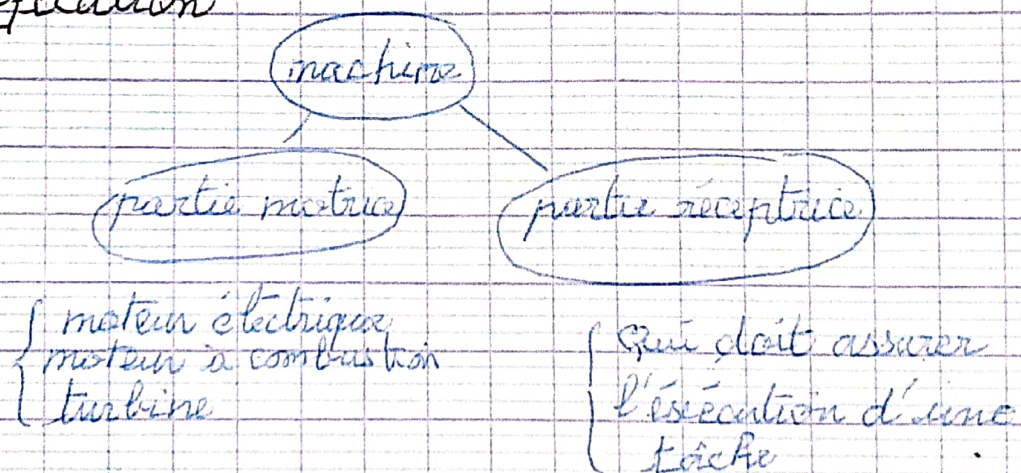 machine
partie motrice
partie réceptrice
moteur électrique
moteur à combustion
turbine
Qui doit assurer
l'éxécution d'une
tâche